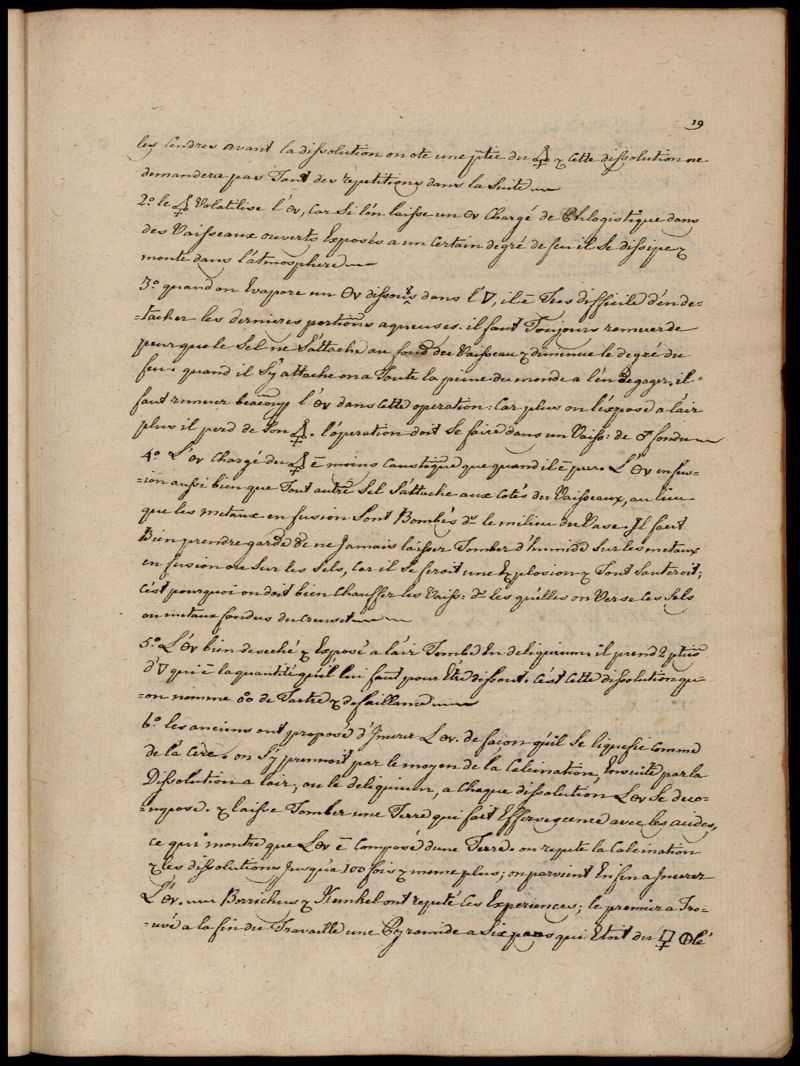 19
les Cendres avant la dissolution on ote une ptie du 🜍 & Cette dissolution ne
demandera pas Tant des répétitions dans la Suite
2.° le 🜍 Volatilise l'Ov, Car Si l'on laisse un Ov Chargé de Phlogistique dans
des Vaisseaux ouverts Exposés a un Certain degré de feu il Se dissipe &
monte dans l'atmosphere
3.° quand on Evapore un Ov dissous dans l'🜄, il ē Tres difficile d'en de-
=tacher les dernieres portions aqueuses. il faut Toujours remuer de
peur que le Sel ne S'attache au fond des Vaisseaux & diminue le degré du
feu. quand il S'y attache on a Toute la peine du monde a l'en degager, il
faut remuer beaucoup l'Ov dans Cette operation: Car plus on l'expose a lair
plus il perd de Son 🜍. l'opération doit Se faire dans un Vaiss: de ♂ fondu
4.° L'Ov Chargé du 🜍 ē moins Caustique que quand il ē pur. L'Ov en fus-
=ion aussi bien que Tout autre Sel S'attache aux Cotés du Vaisseaux, au lieu
que les metaux en fusion Sont Bombés ds le milieu du Vase. Il faut
Bien prendre garde de ne Jamais laisser Tomber d'humide Sur les metaux
en fusion ou Sur les Sels, Car il Se feroit une Explosion & Tout Sauteroit;
C'est pourquoi on doit bien Chauffer les Vaiss: ds les quelles on Verse Ces Sels
ou metaux fondus du creuset
5.° L'Ov bien deseché & Exposé a l'air Tombe En deliquium, il prend 2 pties
d'🜄 qui ē la quantité qu'il lui faut pour Etre dissout. C'est Cette dissolution qu-
=on nomme de Tartre & de faillance
6.° les anciens ont proposé d'Incerer L'Ov. de façon qu'il Se liquefie Comme
de la Cire. on S'y prennoit par le moyen de la Calcination, Ensuite par la
Dissolution a lair, ou le deliquium, a Chaque dissolution L'Ov Se deco-
=mpose. & laisse Tomber une Terre qui fait Effervescence avec les acides,
ce qui montre que L'Ov ē Composé d'une Terre. on repete la Calcination
& les dissolutions Jusqu'a 100 fois & meme plus; on parvient Enfin a Incerer
L'Ov. Borrichius & Kunkel ont repeté Ces Experiences; le premier a Tro-
=uvé a la fin du Travaille une Pyramide a Six pans qui Etoit du ☿ Φlé